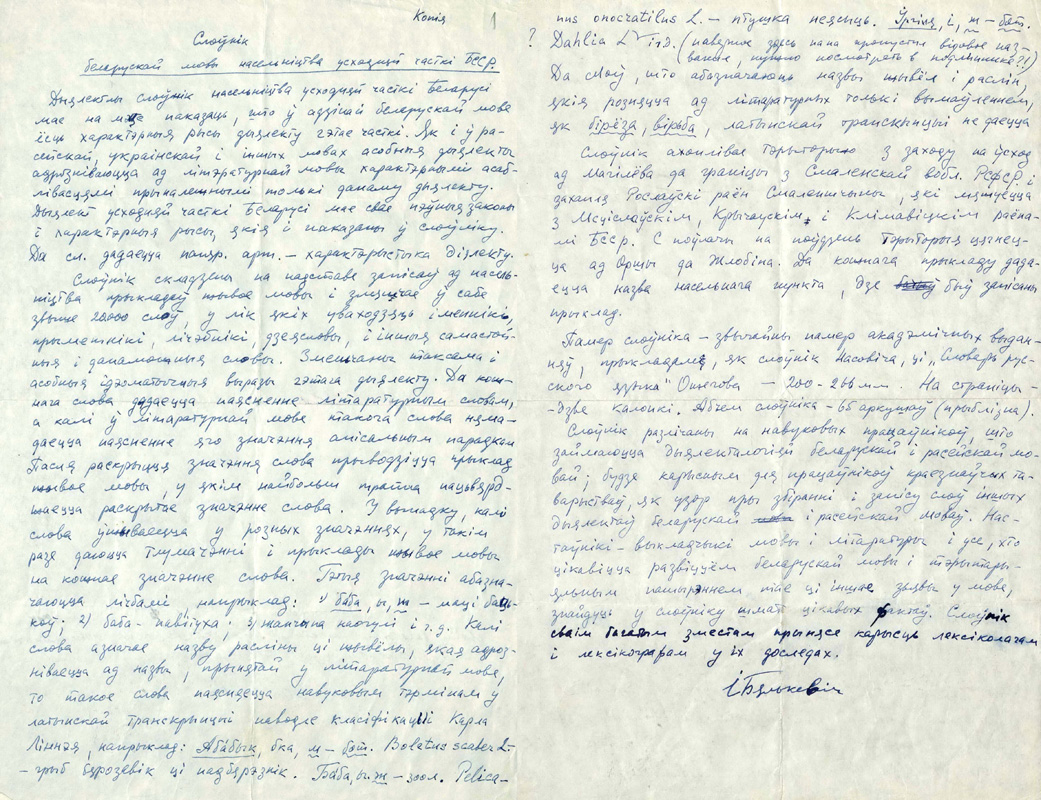 Копія 1
Слоўнік
беларускай мовы насельніцтва усходняй часткі БССР.
Дыялектны слоўнік насельніцтва усходняй часткі Беларусі
мае на мэце паказаць, што ў адзінай беларускай мове
ёсць характэрныя рысы дыялекту гэтае часткі. Як і ў ра-
сейскай, украінскай і іншых мовах асобныя дыялекты
адрозніваюцца ад літэратурнай мовы характэрнымі асаб-
лівасцямі прыналежнымі толькі данаму дыялекту.
Дыялект усходняй часткі Беларусі мае свае пэўныя законы
і характэрныя рысы, якія і паказаны ў слоўніку.
Да сл. дадаецца папяр. арт. – характарыстыка дыялекту.
Слоўнік складзены на падставе запісаў ад насель-
ніцтва прыкладаў жывое мовы і змяшчае ў сабе
звыш 20000 слоў, у лік якіх уваходзяць іменнікі,
прыметнікі, лічэбнікі, дзеясловы, і іншыя самастой-
ныя і дапаможныя словы. Змешчаны таксама і
асобныя ідэоматычныя выразы гэтага дыялекту. Да кож-
нага слова дадаецца паясненне літаратурным словам,
а калі ў літаратурнай мове такога слова няма-
даецца паясненне яго значэння апісальным парадкам
Пасля раскрыцця значэння слова прыводзіцца прыклад
жывое мовы, у якім найбольш трапна пацьвярд-
жаецца раскрытае значэнне слова. У выпадку, калі
слова ўжываецца у розных значэннях, у такім
разе даюцца тлумачэнні і прыклады жывое мовы
на кожнае значэнне слова. Гэтыя значэнні абазна-
чаюцца лічбамі, напрыклад: 1) баба, ы, ж – маці баць-
коў; 2) баба – павітуха; 3) жанчына наогул і г.д. Калі
слова азначае назву расліны ці жывёлы, якая адроз-
ніваецца ад назвы, прынятай у літаратурнай мове,
то такое слова паясняецца навуковым тэрмінам у
латынскай транскрыпцыі паводле класіфікацыі Карла
Ліннэя, напрыклад: Абабык, бка, м – бот. Bolatus scaber L. –
– грыб бярозевік ці падбярэзнік. Баба, ы, ж – зоол. Pelica-
nus onocratilus L. – птушка неясыць. Ўргіня, і, ж – бот.
? Dahlia L і г.д. (наверное здесь папа пропустил видовое наз-
вание, нужно посмотреть в подлиннике?!)
Да слоў, што абазначаюць назвы жывёл і раслін,
якія розняцца ад літаратурных толькі вымаўленнем,
як бірёза, вірьба, латынскай транскрыпцыі не даецца
Слоўнік ахоплівае тэрыторыю з захаду на ўсход
ад Магілёва да граніцы з Смаленскай вобл. РСФСР. і
захапля Рослаўскі раён Смаленшчыны, які мяжуецца
з Мсціслаўскім, Крычаўскім, і Клімавіцкім раёна-
мі БССР. С поўначы на поўдзень тэрыторыя цягнец-
ца ад Оршы да Жлобіна. Да кожнага прыкладу дада-
ецца назва населенага пункта, дзе быў запісаны
прыклад.
Памер слоўніка – звычайны памер акадэмічных выдан-
няў, прыкладам, як слоўнік Насовіча, ці „Словарь рус-
ского языка" Ожегова – 200-266 мм. На страніцы –
– дзве калонкі. Аб'ем слоўніка – 65 аркушаў (прыблізна).
Слоўнік разлічаны на навуковых працаўнікоў, што
займаюцца дыялекталогіяй беларускай і расейскай мо-
вай; будзе карысным для працаўнікоў краязнаўчых та-
варыстваў, як узор пры збіранні і запісу слоў іншых
дыялектаў беларускай і расейскай моваў. Нас-
таўнікі – выкладчыкі мовы і літаратуры і усе, хто
цікавіцца развіццём беларускай мовы і тэрытары-
яльным пашырэннем тае ці іншае зьявы у мове,
знайдуць у слоўніку шмат цікавых фактаў. Слоўнік
сваім багатым зместам прынясе карысць лексіколагам
і лексікографам у іх доследах.
І Бялькевіч